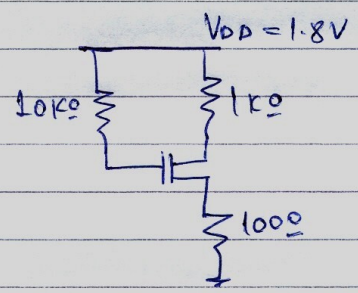 VDD = 1.8V
10KΩ
1KΩ
100Ω